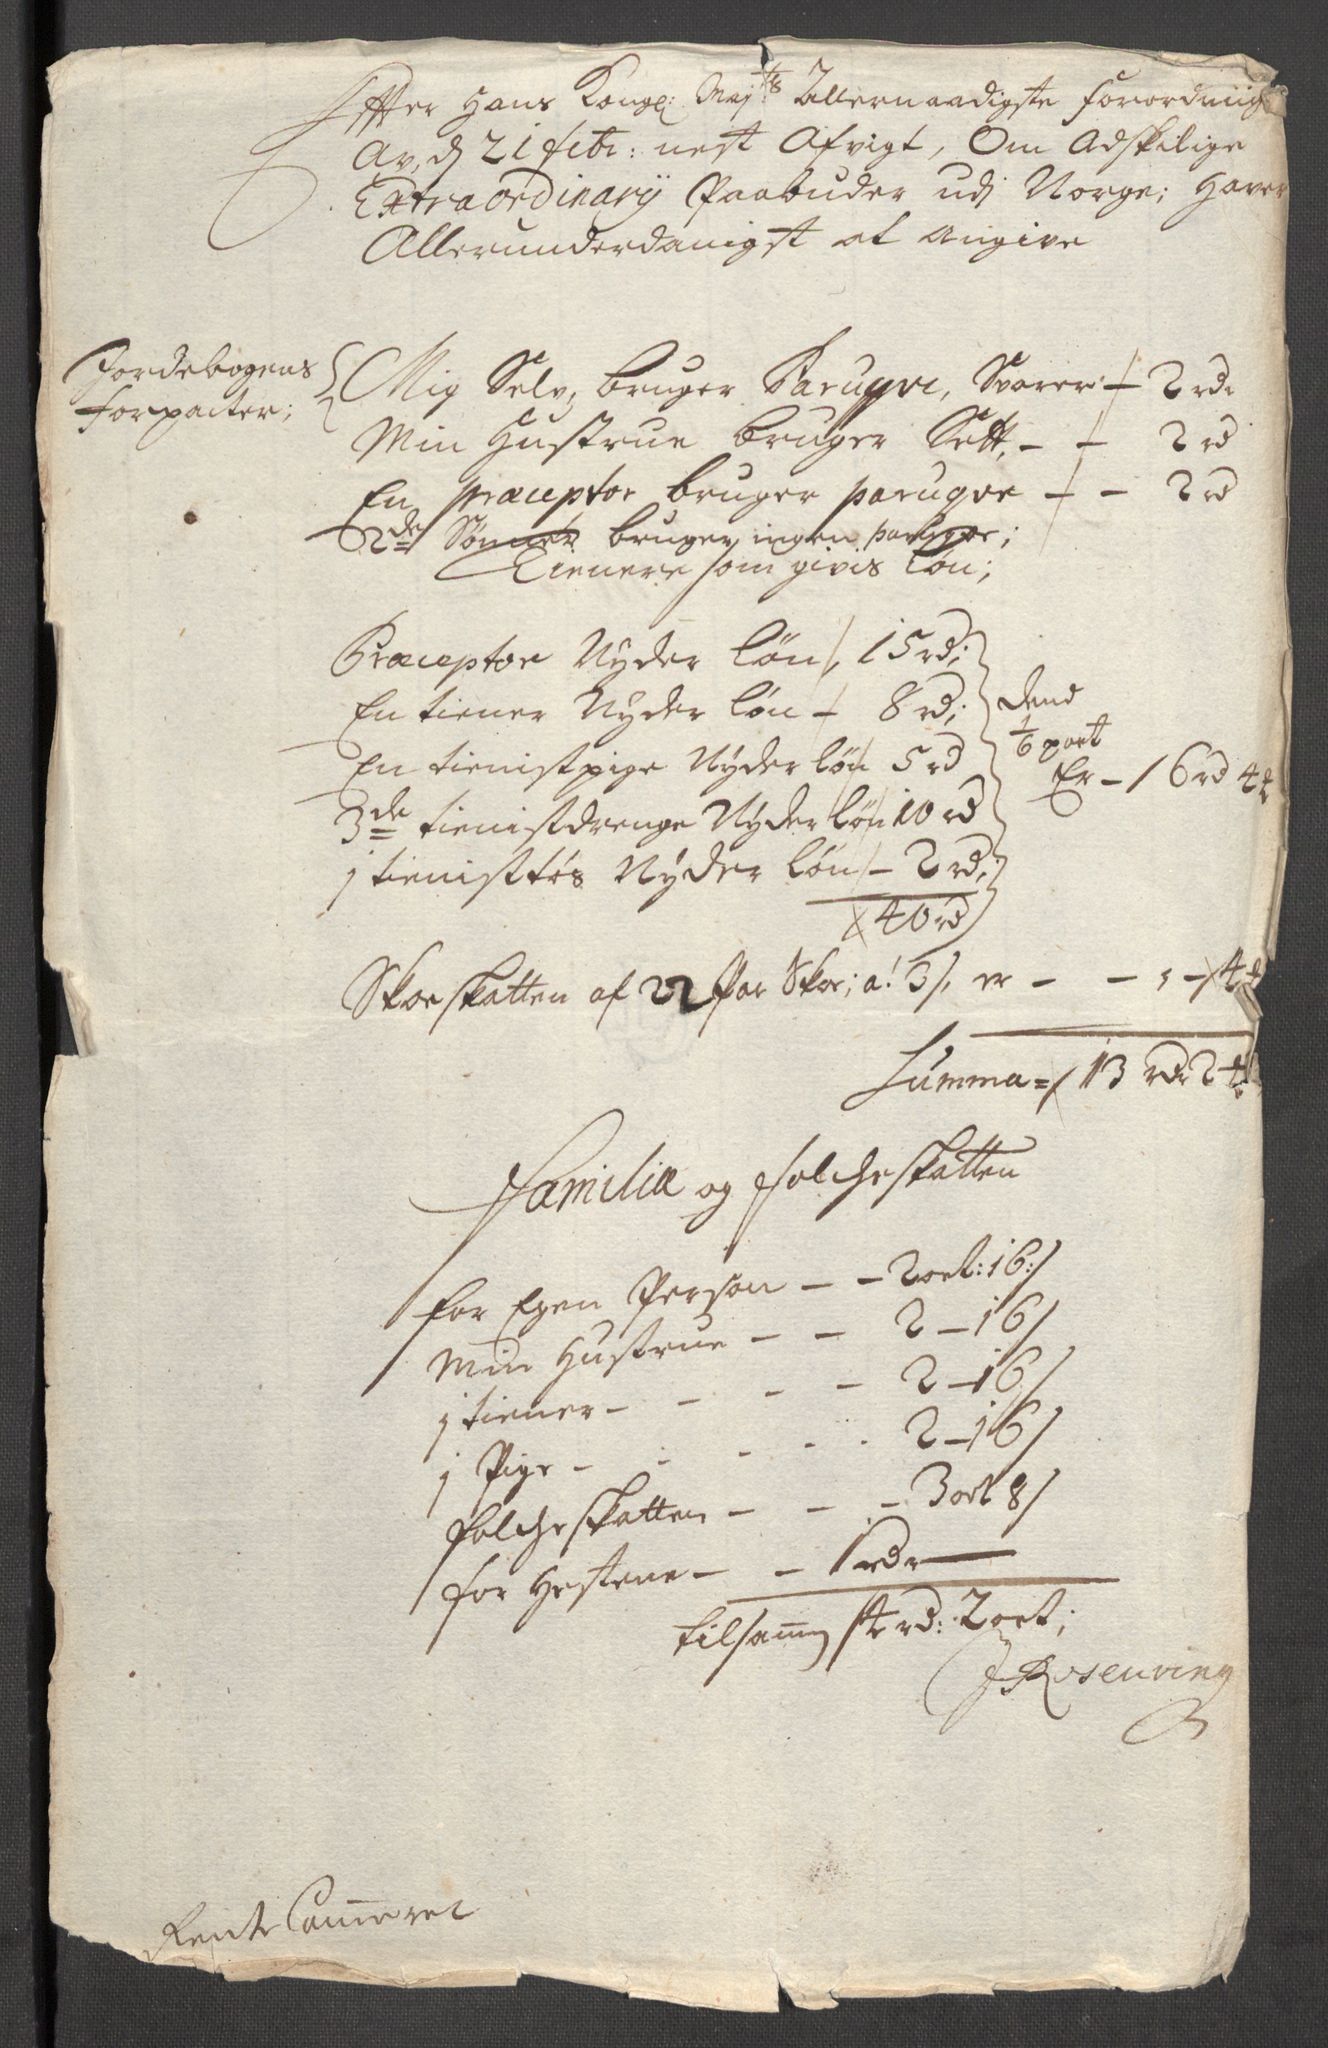 Effter Hans Kongl: Maj:ts Allernaadigste forordning
Av, d 21 febr: nest Afvigt, Om Adskilige
Extraordinarij Paabuder udj Norge; Haver
Allerunderdanigst at Angive
Jordebogens
forpacter;
Mig Selv, bruger Paruqve, Svarer - 2 rdr
Min Hustrue bruger Sett, - - 2 rd
En præceptor bruger paruqve - - 2 rd
2de Sønner bruger ingen paruqve;
Tienere som givis løn;
Præceptor Nyder løn, 15 rd;
En tiener Nyder løn - 8 rd;
En tienistpige Nyder løn 5 rd
3de tienistdrenge Nyder løn 10 rd
1 tienisttøs Nyder løn - 2 rd;
40 rd
dend
1/6 part
Er - 6 rd 4
Skoeskatten af 22 Par Skoe; a! 3/. er - - - 4
Summa = 13 rdr 2
Familiæ og folcheskatten
for Egen Person - - 2 ort: 16:/
Min Hustrue - - 2 - 16/
1 tiener - - - - 2 - 16/
1 Pige - - - - - 2 - 16/
folcheskatten - - - 3 ort 8/
for Hestene - - 1 rdr
tilsamen 4 rd: 2 ort;
J Rosenving
Rente Cammeret